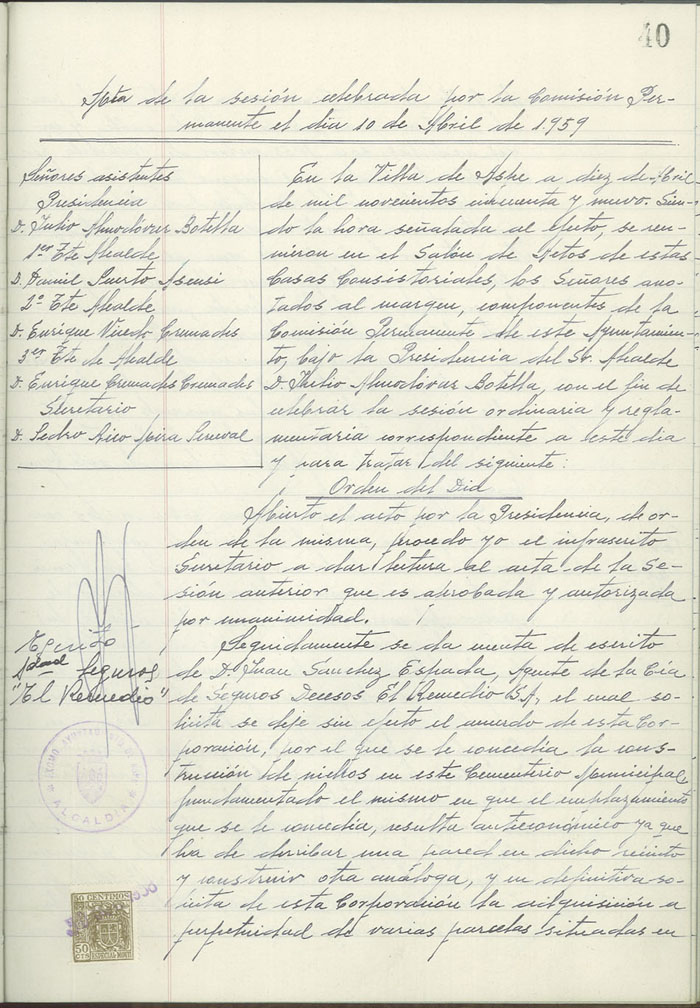 40
Acta de la sesión celebrada por la Comisión Per-
manente el dia 10 de Abril de 1.959
Señores asistentes
Presidencia
D. Julio Almodóvar Botella
1er Tte Alcalde
D. Daniel Puerto Asensi
2º Tte Alcalde
D. Enrique Vicedo Cremades
3er Tte de Alcalde
D. Enrique Cremades Cremades
Secretario
D. Pedro Rico Mira
En la Villa de Aspe a diez de Abril
de mil novecientos cincuenta y nueve. Sien-
do la hora señalada al efecto, se reu-
nieron en el Salón de Actos de estas
Casas Consistoriales, los Señores ano-
tados al margen, componentes de la
Comisión Permanente de este Ayuntamien-
to, bajo la Presidencia del Sr. Alcalde
D. Julio Almodóvar Botella, con el fin de
celebrar la sesión ordinaria y regla-
mentaria correspondiente a este dia
y para tratar del siguiente:
Orden del Dia
Abierto el acto por la Presidencia, de or-
den de la misma, procedo yo el infrascrito
Secretario a dar lectura al acta de la Se-
sión anterior que es aprobada y autorizada
por unanimidad.
Escrito
Seguros
"El Remedio"
Seguidamente se da cuenta de escrito
de D. Juan Sánchez Estrada, Agente de la Cía
de Seguros Decesos El Remedio S.A, el cual so-
licita se deje sin efecto el acuerdo de esta Cor-
poración, por el que se le concedía la cons-
trucción de nichos en este Cementerio Municipal,
fundamentado el mismo en que el emplazamiento
que se le concedía, resulta antieconómico ya que
ha de derribar una pared en dicho recinto
y construir otra análoga, y en definitiva so-
licita de esta Corporación la adquisición a
perpetuidad de varias parcelas situadas en
ALCALDIA
50 CENTIMOS
50 CTS
ESPECIAL MOVIL